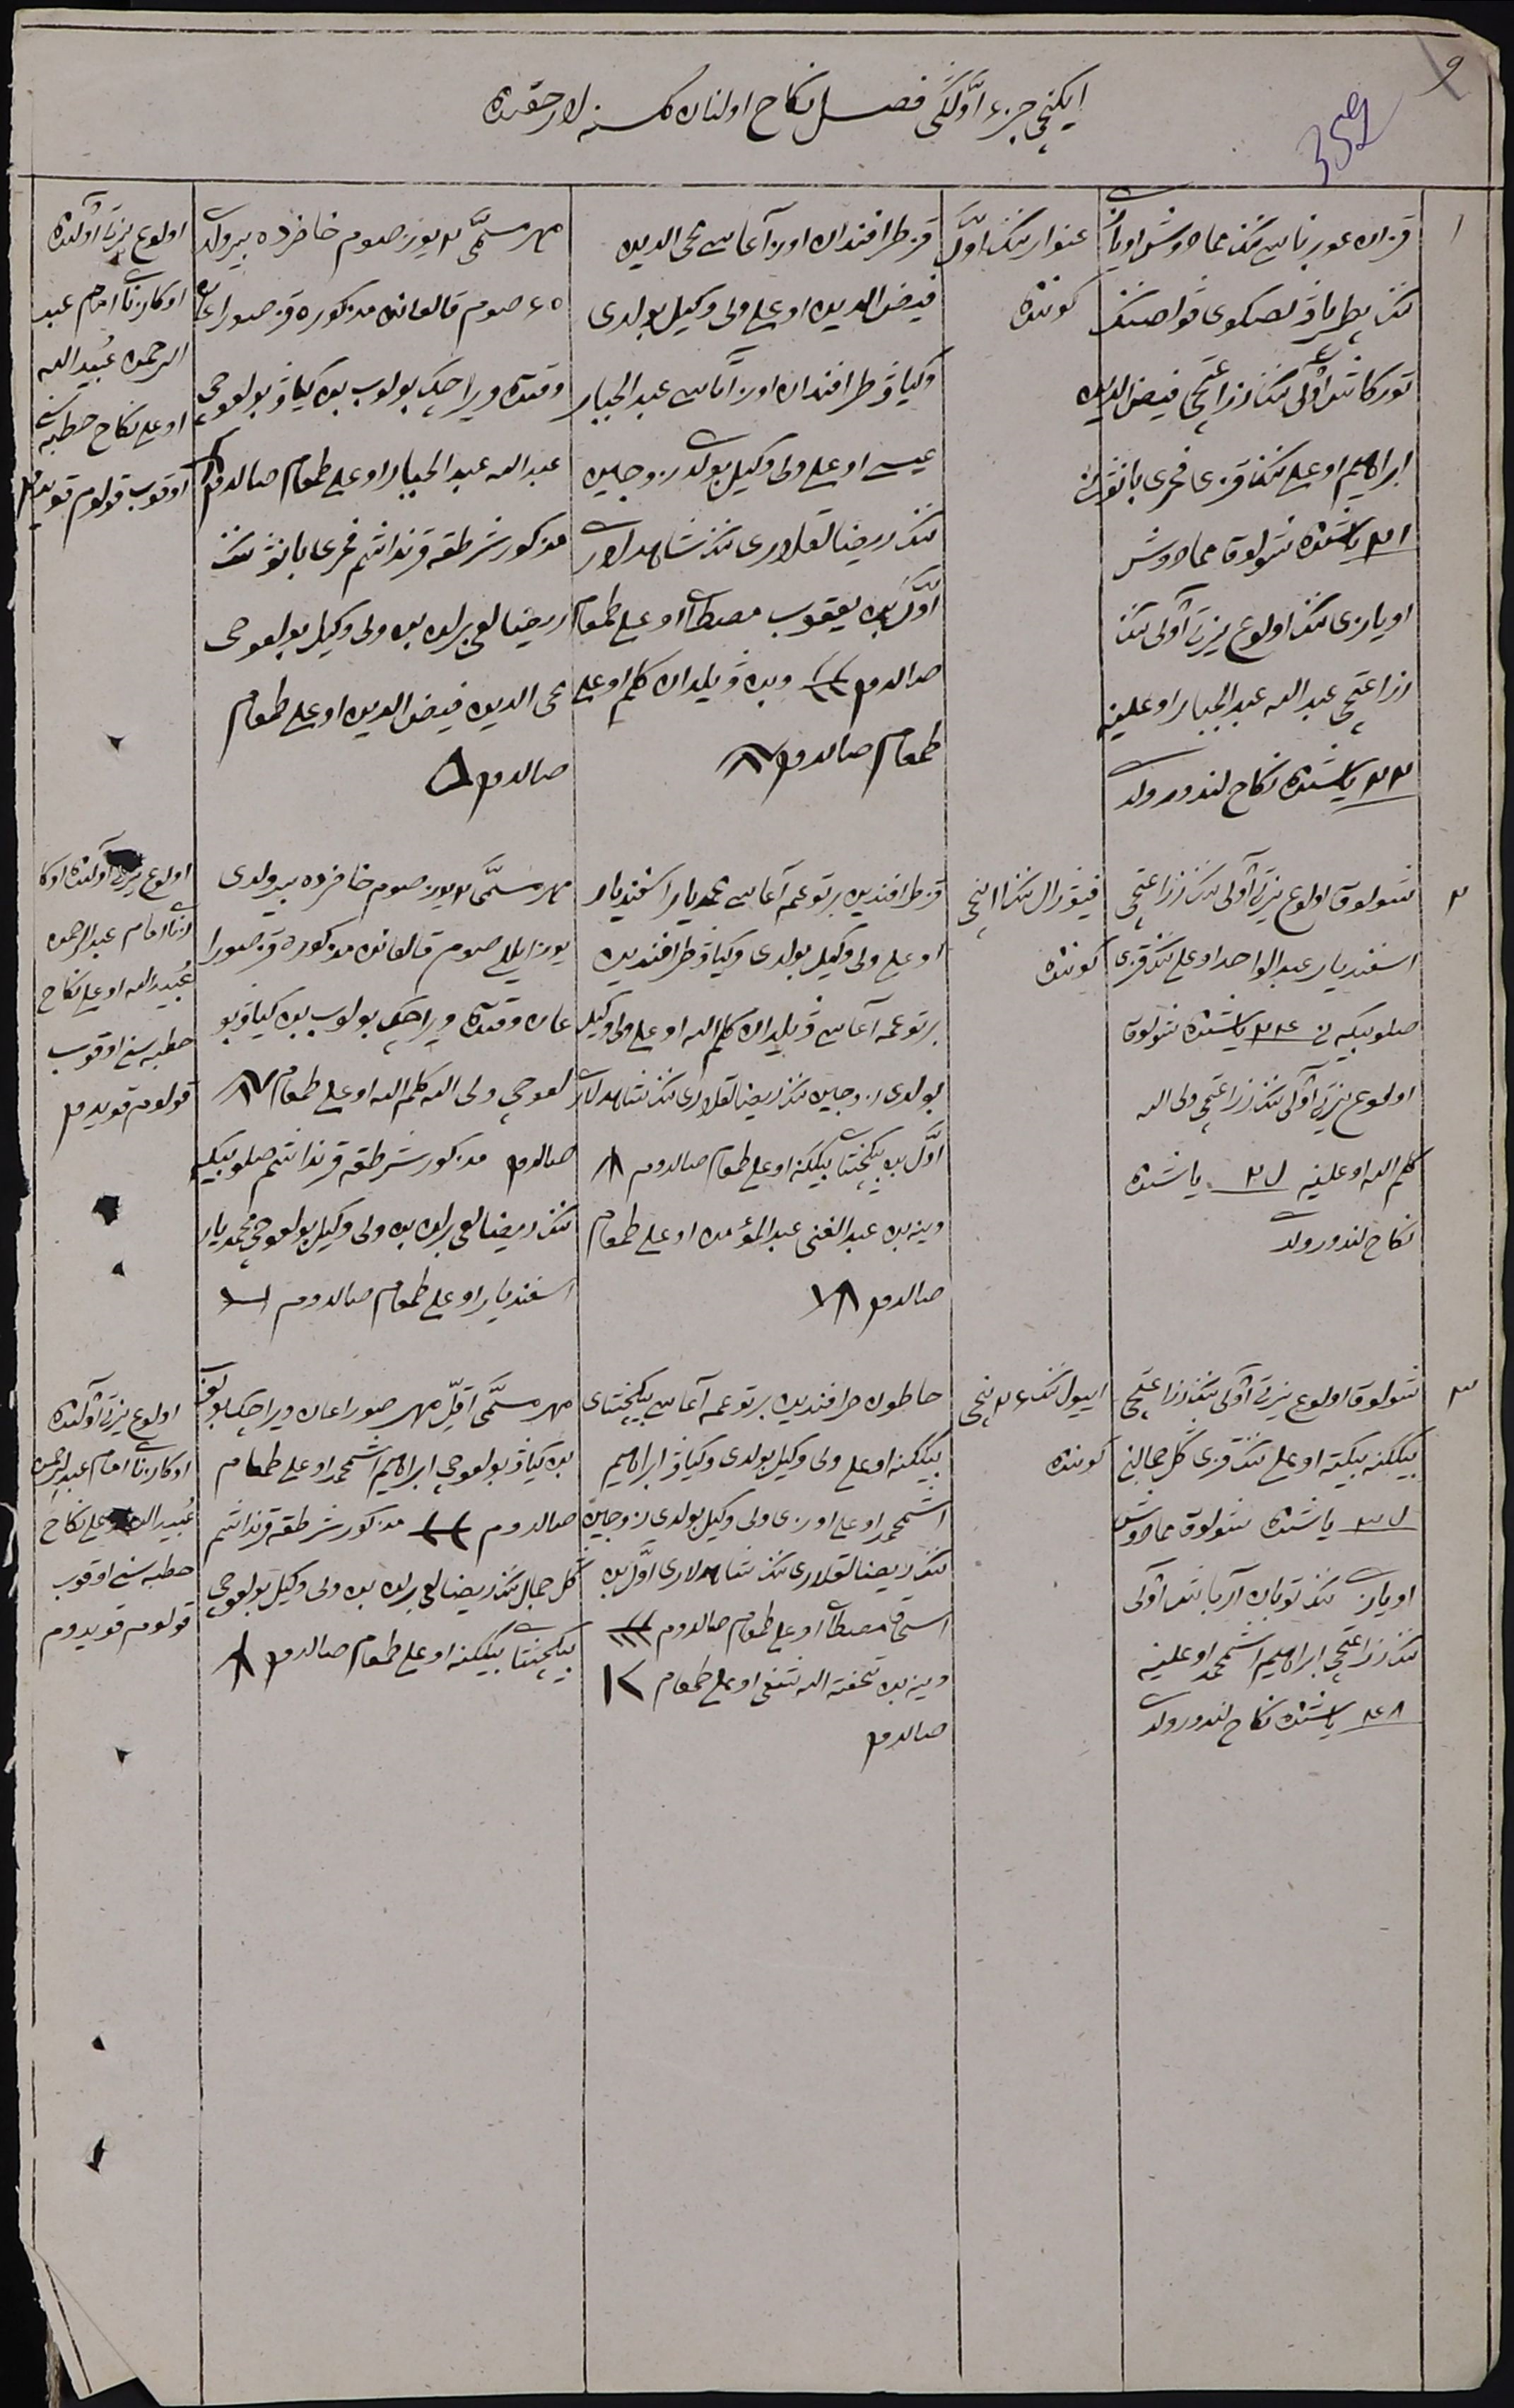 9
352
ایکنچی جزء اوّلگی فصل نکاح اولنان کسنه لار حقنده
۱
قزان غوبرناسی ننک مامادوش اویازی
ننک
تورکاش آولی ننک زراعتچی فیض الدین
ابراهیم اوغلی ننک قزی فخری بانونی
یاشنده شولوق مامادوش
اویازی ننک اولوغ آولی ننک
زراعتچی عبد الله عبد الجبار اوغلینه
۲۳ یاشنده نکاح لندورولدی
غنوار ننک اوّل
کوننده
قز طرافندان اوز آغاسی محی الدین
فیض الدین اوغلی ولی وکیل بولدی
وکیاو طرافندان اوز آتاسی عبد الجبار
عیسی اوغلی ولی وکیل بولدی زوجاین
ننک رضالقلاری ننک شاهدلاری
اوّل بن یعقوب مصطفی اوغلی طمغام
صالدوم وبن اوغلی
طمغام صالدوم
مهر مسمّی یوز صوم حاضرده بیرولدی
صوم قالغانی مذکوره قز صوراغان
وقتده ویراچک بولوب بن کیاو بولغوچی
عبد الله عبد الجبار اوغلی طمغام صالدوم
مذکور شرطقه قرنداشم فخری بانو ننک
رضالغی برلن بن ولی وکیل بولغوچی
محی الدین فیض الدین اوغلی طمغام
صالدوم
اولوغ آولنده
امام عبد
الرحمن عبید الله
اوغلی نکاح خطبه سنی
اوقوب قولوم قویدوم
۲
شولوق اولوغ آولی ننک زراعتچی
اسفندیار عبد الواحد اوغلی ننک قزی
صلوبیکه نی یاشنده شولوق
اولوغ آولی ننک زراعتچی ولی الله
کلم الله اوغلینه یاشنده
نکاح لندورولدی
فیورال ننک نچی
کوننده
قز طرافندین برتوغم آغاسی محمدیار اسفندیار
اوغلی ولی وکیل بولدی وکیاو طرافندین
برتوغمه آغاسی کلم الله اوغلی ولی وکیل
بولدی زوجاین ننک رضالقلاری ننک شاهدلاری
اوّل بن بیکجنتای بیککنه اوغلی طمغام صالدوم
وینه بن عبد الغنی عبد المؤمن اوغلی طمغام
صالدوم
مهر مسمّی یوز صوم حاضرده بیرولدی
یوز ایللی صوم قالغانن مذکوره قز صورا
غان وقتده ویراچک بولوب بن کیاو بو
لغوچی ولی الله کلم الله اوغلی طمغام
صالدوم مذکور شرطقه قرنداشم صلوبیکه
ننک رضالغی برلن بن ولی وکیل بولغوچی محمدیار
اسفندیار اوغلی طمغام صالدوم
اولوغ آولنده
امام عبد الرحمن
عبید الله اوغلی نکاح
خطبه سنی اوقوب
قولوم قویدوم
۳
شولوق اولوغ آولی ننک زراعتچی
بیککنه اوغلی ننک قزی گل جمالنی
یاشنده شولوق مامادوش
اویازی ننک توبان آرباش آولی
ننک زراعتچی ابراهیم اشمحمد اوغلینه
یاشنده نکاح لندورولدی
اییول ننک نچی
کوننده
خاطون طرافندین برتوغمه آغاسی بیکجنتای
بیککنه اوغلی ولی وکیل بولدی وکیاو ابراهیم
اشمحمد اوغلی اوزی ولی وکیل بولدی زوجاین
ننک رضالقلاری ننک شاهدلاری اوّل بن
اسحاق مصطفی اوغلی طمغام صالدوم
وینه بن تحفة الله اوغلی طمغام
صالدوم
مهر مسمّی اقلّ مهر صوراغان ویراچک بولوب
بن کیاو بولغوچی ابراهیم اشمحمد اوغلی طمغام
صالدوم مذکور شرطقه قرنداشم
گل جمال ننک رضالغی برلن بن ولی وکیل بولغوچی
بیکجنتای بیککنه اوغلی طمغام صالدوم
اولوغ آولنده
امام عبد الرحمن
عبید الله اوغلی نکاح
خطبه سنی اوقوب
قولوم قویدوم